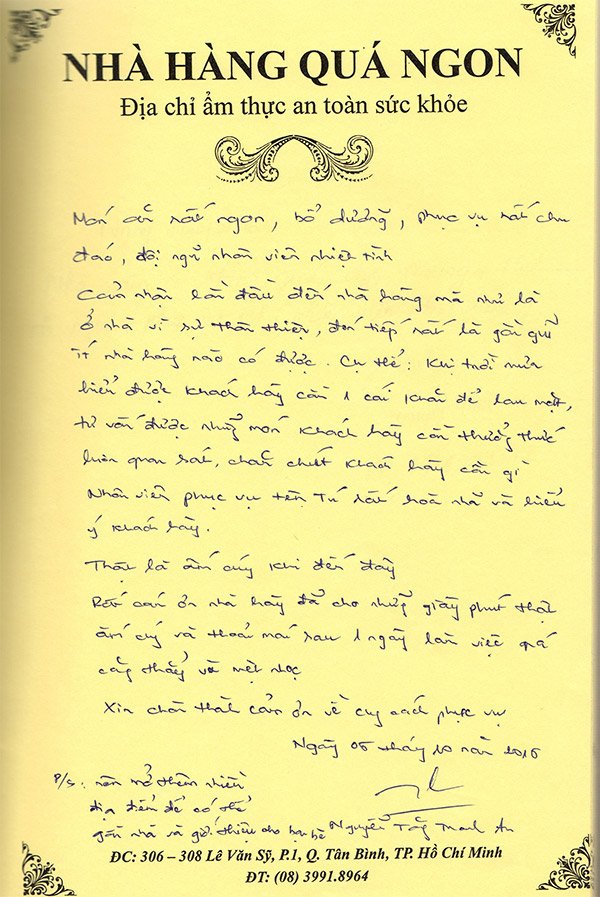 NHÀ HÀNG QUÁ NGON
Địa chỉ ẩm thực an toàn sức khỏe
Món ăn rất ngon, bổ dưỡng, phục vụ rất chu
đáo, đội ngũ nhân viên nhiệt tình
Cảm nhận lần đầu đến nhà hàng mà như là
ở nhà vì sự thân thiện, đón tiếp rất là gần gũi
ít nhà hàng nào có được. Cụ thể: Khi trời mưa
hiểu được khách hàng cần 1 cái khăn để lau mặt,
tư vấn được những món khách hàng cần thưởng thức
luôn quan sát, chăm chút khách hàng cần gì
Nhân viên phục vụ tên Tú rất hoà nhã và hiểu
ý khách hàng.
Thật là ấm cúng khi đến đây
Rất cám ơn nhà hàng đã cho những giây phút thật
ấm cúng và thoải mái sau 1 ngày làm việc quá
căng thẳng và mệt nhọc
Xin chân thành cảm ơn về cung cách phục vụ
Ngày 05 tháng 10 năm 2016
P/s: nên mở thêm nhiều
địa điểm để có thể
gần nhà và giới thiệu cho bạn bè
Nguyễn Thanh An
ĐC: 306 – 308 Lê Văn Sỹ, P.1, Q. Tân Bình, TP. Hồ Chí Minh
ĐT: (08) 3991.8964